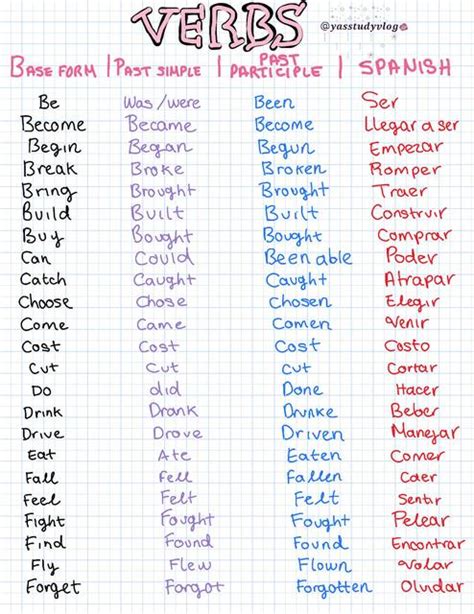 VERBS
@yasstudyvlog
BASE FORM | PAST SIMPLE | PAST PARTICIPLE | SPANISH
Be Was/were Been Ser
Become Became Become Llegar a ser
Begin Began Begun Empezar
Break Broke Broken Romper
Bring Brought Brought Traer
Build Built Built Construir
Buy Bought Bought Comprar
Can Could Been able Poder
Catch Caught Caught Atrapar
Choose Chose Chosen Elegir
Come Came Comen Venir
Cost Cost Cost Costo
Cut Cut Cut Cortar
Do did Done Hacer
Drink Drank Drunke Beber
Drive Drove Driven Manejar
Eat Ate Eaten Comer
Fall Fell Fallen Caer
Feel Felt Felt Sentir
Fight Fought Fought Pelear
Find Found Found Encontrar
Fly Flew Flown Volar
Forget Forgot Forgotten Oluidar